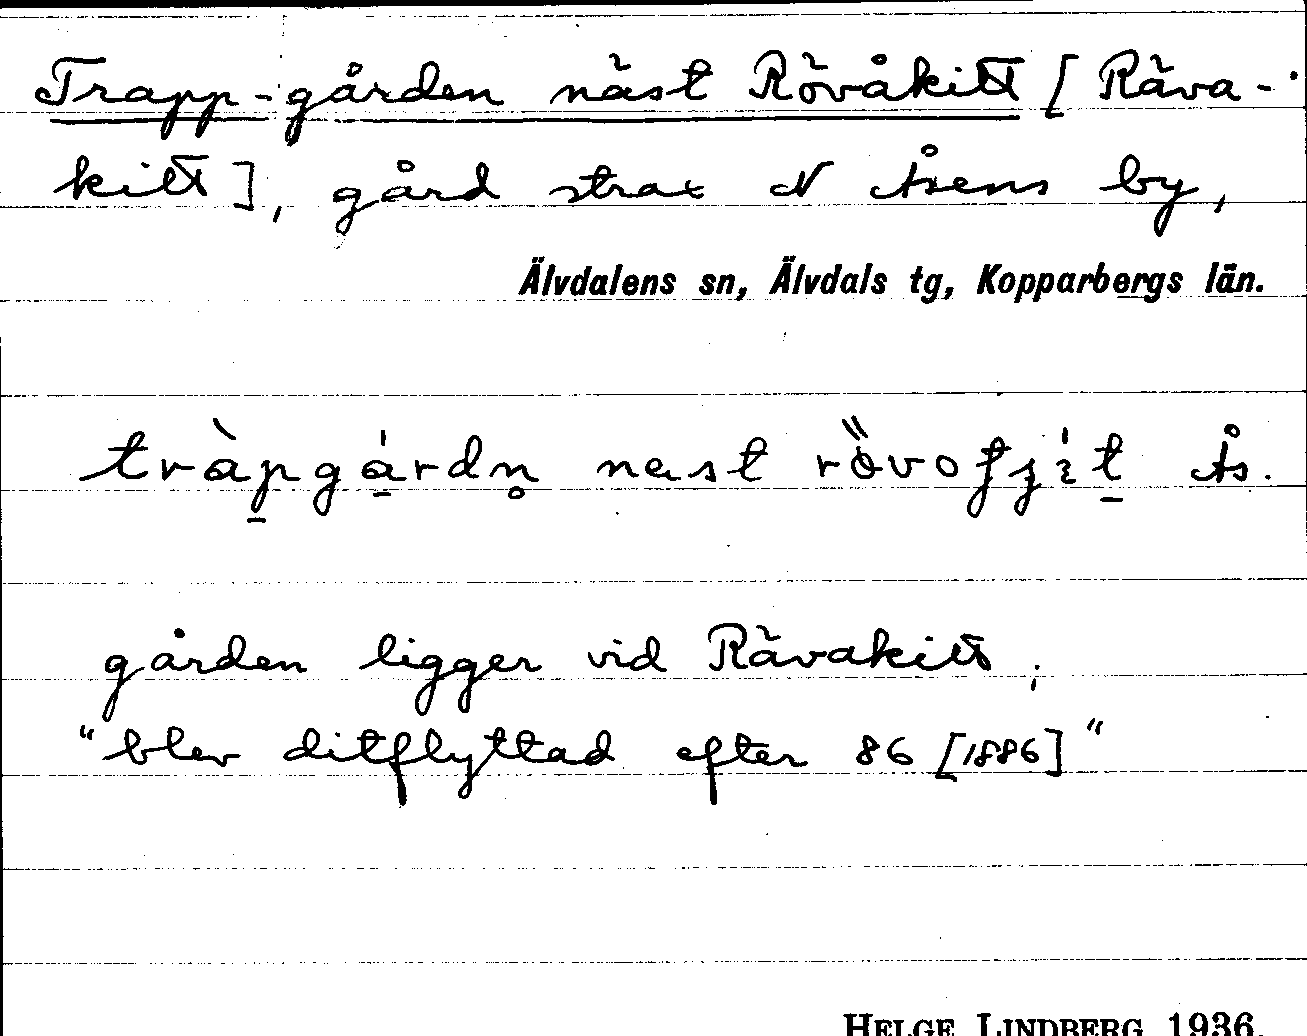 Trapp-gården näst Rövåkitt [Räva-
kitt], gård strax N Åsens by,
Älvdalens sn, Älvdals tg, Kopparbergs län.
tràpgárdn̥ næst rövofjít Ås.
gården ligger vid Rävakitt;
"blev ditflyttad efter 86 [1886]"
HELGE LINDBERG 1936.